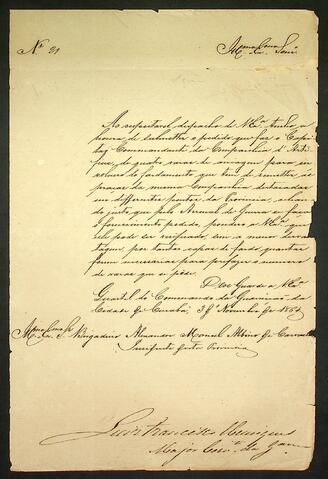 Nº 31
Ao respeitavel despacho de V. Exª tenho a
honra de submetter o pedido que faz o Capi-
tão Commandante da Companhia d'
, de quatro varas de aniagem para en-
volver o fardamento que tem de remetter ás
praças da mesma Companhia destacadas
em differentes pontos da Provincia, e achan-
do justo que pelo Arsenal de Guerra se faça
o fornecimento pedido, pondero a V. Exª que
elle pode ser verificado, sem a
, por tantos capas de fardo quantas
forem necessarias para perfazer o numero
de varas que se pede.
Deos Guarde a V. Exª
Quartel do Commando da Guarnição da
Cidade de Cuiabá, de Novembro de
Brigadeiro Alexandre Manoel Albino de Carvalho
Presidente desta Provincia
Luiz Francisco Henriques
Major